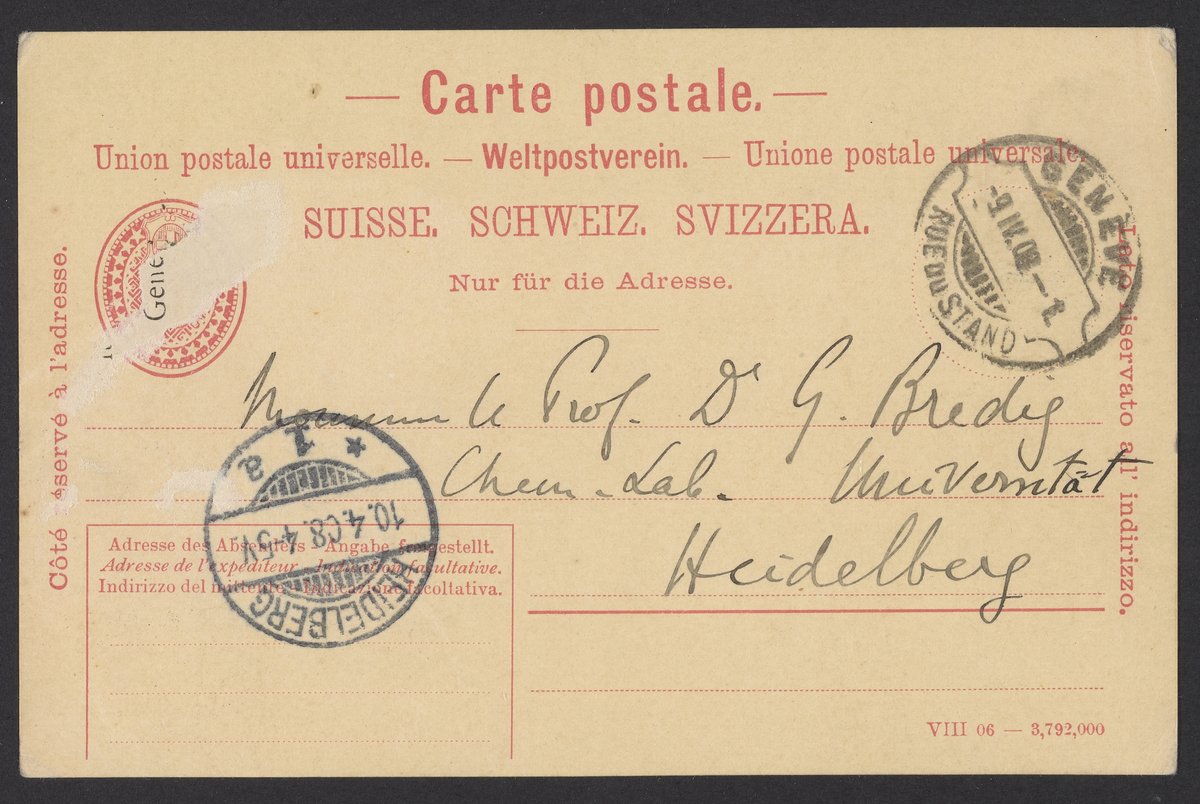 — Carte postale. —
Union postale universelle. — Weltpostverein. — Unione postale universale.
SUISSE. SCHWEIZ. SVIZZERA.
Nur für die Adresse.
Côté réservé à l'adresse.
Lato riservato all' indirizzo.
GENÈVE
-9.IV.08.—1
RUE DU STAND
Gene
Monsieur le Prof. Dr G. Bredig
Chem. Lab. Universität
Heidelberg
* 1 a
10.4.08.4-5V.
HEIDELBERG
Adresse des Absenders - Angabe freigestellt.
Adresse de l'expéditeur - Indication facultative.
Indirizzo del mittente - Indicazione facoltativa.
VIII 06 — 3,792,000